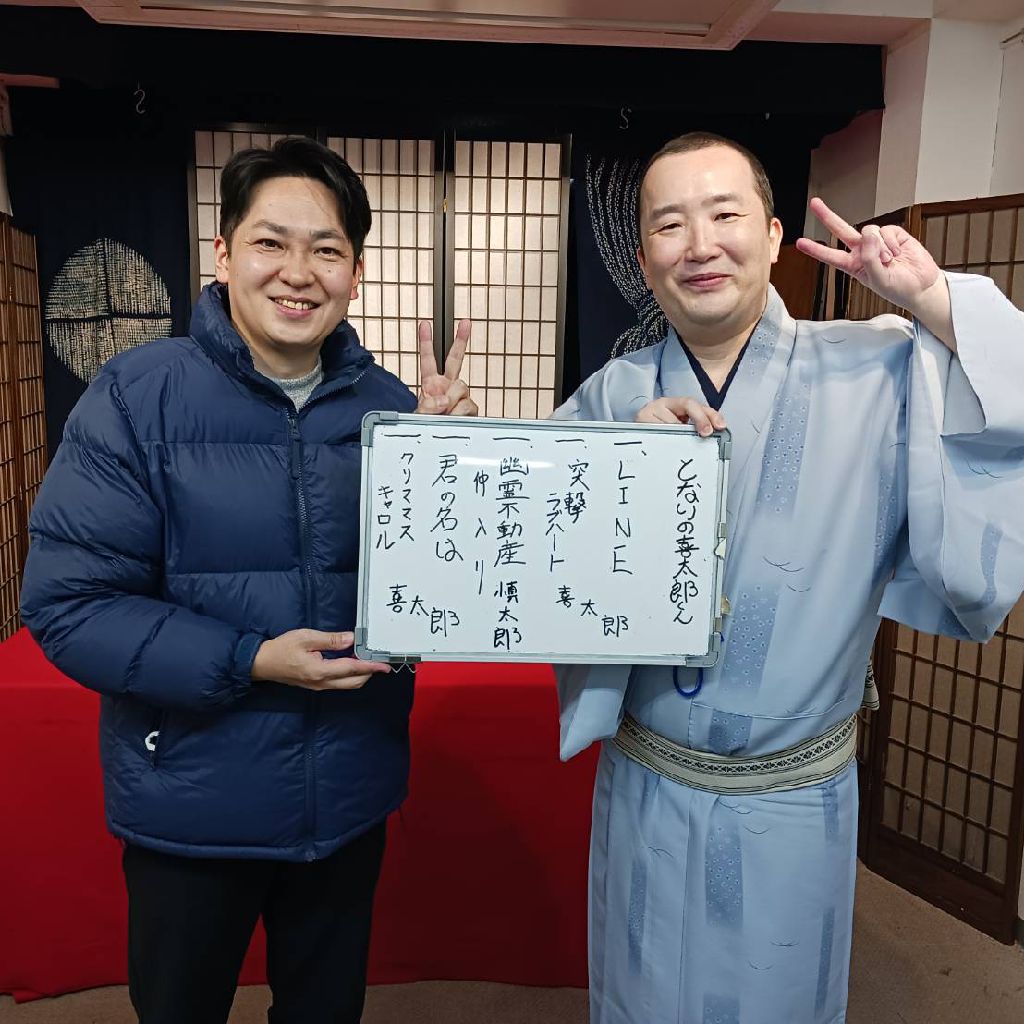 となりの喜太郎くん
一、LINE
一、突撃ラブハート
喜太郎
一、幽霊不動産 慎太郎
仲入り
一 君の名は
一 クリママス
キャロル
喜太郎